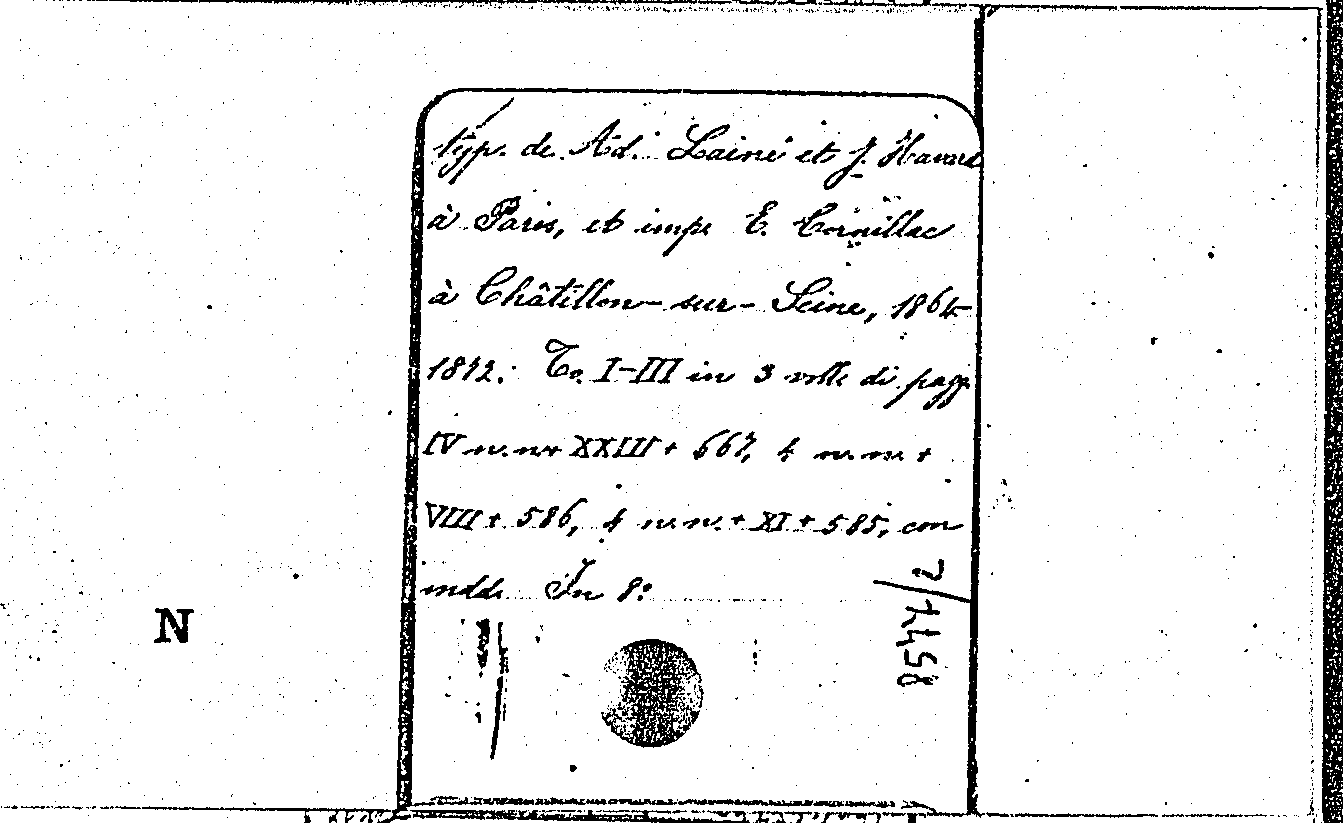 typ. de Ad. Lainé et J. Havard
à Paris, et imp. E. Cornillac
à Châtillon-sur-Seine, 1864-
1872. To. I-III in 3 voll. di pagg.
IV n.n.+ XXIII + 667, 4 n.n. +
VIII + 586, 4 n.n. + XI + 585, con
indd. In 8°
8544/2
N